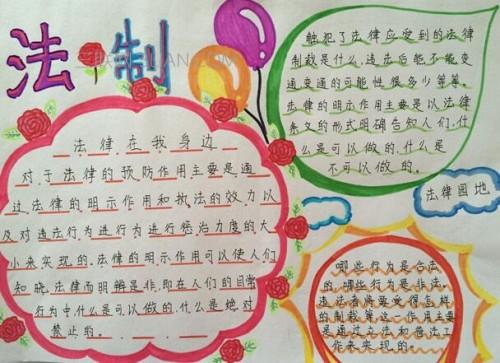 法制
法律在我身边
对于法律的预防作用主要是通
过法律的明示作用和执法的效力以
及对违法行为进行为进行惩治力度的大
小来实现的。法律的明示作用可以使人们
知晓法律而明辨是非,即在人们的日常
行为中什么是可以做的,什么是绝对
禁止的。
触犯了法律应受到的法律
制裁是什么,违法后能不能变
通变通的可能性很多少等等。
法律的明示作用主要是以法律
条文的形式明确告知人们,什
么是可以做的,什么是
不可以做的。
法律园地
哪些行为是合法
的,哪些行为是非法。
违法者将要受得怎样
的制裁等。这一作用主要
是通过立法和普法工
作来实现的